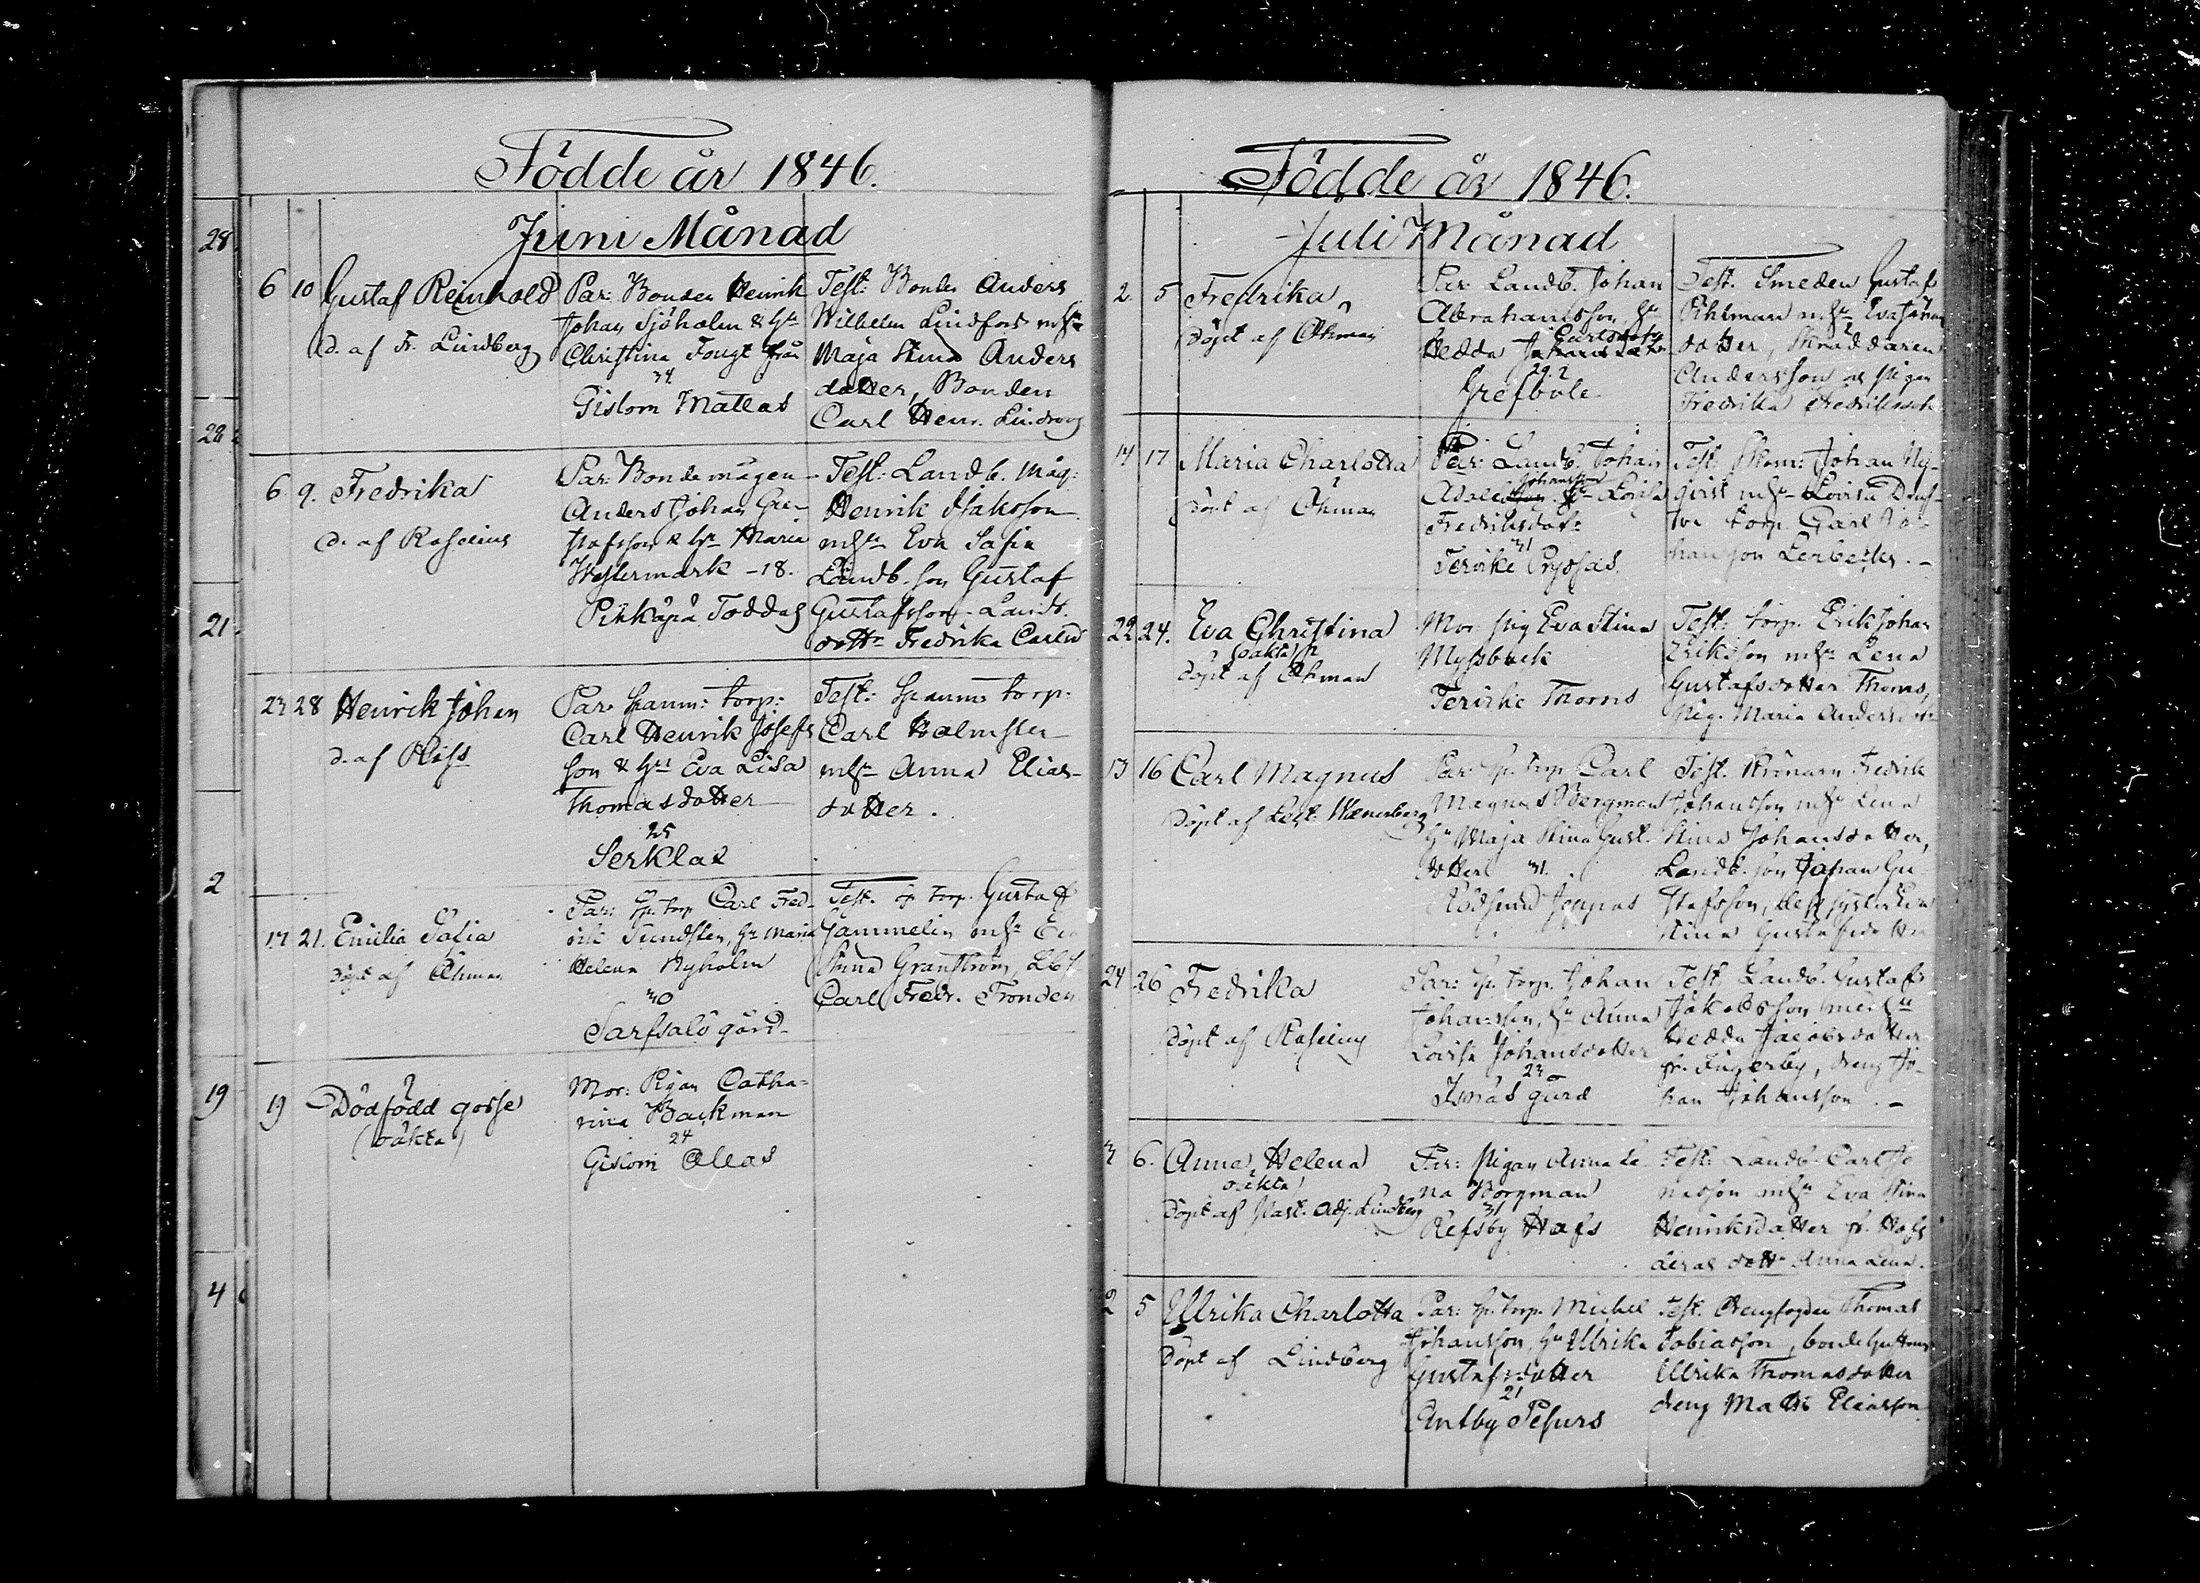 Födde år 1846.
Juni Månad
28
28
21
2
19
4
6 10 Gustaf Reinhold
d. af Fr. Lindberg
Par: Bonden Henrik
Johan Sjöholm & Hu
Christina Fougt från
34
Gislom Mattas
Test: Bonden Anders
Wilhelm Lindfors mHu
Maja Stina Anders
dotter, Bonden
Carl Henr.
6 9. Fredrika
d. af Roselius
Par: Bondemågen
Anders Johan Gu-
stafsson & Hu Maria
Westermark - 18.
Pikkapä Toddas
Test: Landb. måg:
Henrik Isaksson
mHu Eva Sofia
Landb. son Gustaf
Gustafsson Landb.
dottr Fredrika Carlsd
23 28 Henrik Johan
d. af
Par: Spanm: torp:
Carl Henrik Josefs
son & Hu Eva Lisa
Thomasdotter
25
Serklax
Test: Spanm: torp.
Carl Malmsten
mHu Anna Elias-
dotter.
17 21. Emilia Sofia
Döpt af Öhman
Par: Sp: torp Carl Fred-
rik Sundsten, Hu Maria
Helena Nyholm
30
Sarfsalö gård
Test. Sp torp. Gustaf
Gammelin mHu Eva
Stina Granström,
Carl Fredr.
19 Dödfödd gosse
(oäkta)
Mor: Pigan Catha-
rina Backman
24
Gislom Allas
Födde år 1846.
Juli Månad
2 5 Fredrika
Döpt af Öhman
Par: Landb. Johan
Abrahamsson, Hu
Carlsdotter
Hedda
29.2
Grefböle
Test. Smeden Gustaf
Pihlman mHu Eva Johans
dotter, Skräddaren
Andersson o. pigan
Fredrika Fredriksdotr
14 17 Maria Charlotta
Döpt af Öhman
Par: Landb. Johan
Johansson
Adolf Hu Lovisa
Fredriksdotr
31
Tervike Prydsas
Test: Johan Ny-
qvist mHu Lovisa
torp. Carl Jo-
hansson
22 24. Eva Christina
(oäkta)
döpt af Öhman
Mor pig Eva Stina
Mossback
Tervike Thoms
Test: torp. Erik Johan
Eriksson mHu Lena
Gustafsdotter Thoms,
Pig. Maria Andersdotr
13 16 Carl Magnus
Döpt af Lect. Wænerberg
Par: Sp. torp Carl
Magnus Bergman
Hu Maja Stina Gust.
dotter 31.
Rödsund Jeppas
Test. Fredrik
Johansson mHu Lena
Stina Johansdotter,
Landb. son Johan Gu-
stafsson, dess syster
Stina Gustafsdotter
24 26 Fredrika
Döpt af Roselius
Par: Sp. torp. Johan
Johansson, Hu Anna
Lovisa Johansdotter
23
Isnäs gård
Test. Landb. Gustaf
Jakobsson med Hu
Hedda Jacobsdotter
fr. Fingerby, dreng Jo-
han Johansson. -
3 6. Anna Helena
oäkta
Döpt af Past. Adj. Lindberg
Par: Pigan Anna Le-
na Borgman
31
Refsby Hafs
Test: Landb. Carl Jo
nasson mHu Eva Stina
Henriksdotter fr. Hafs
deras dottr Anna Lena.
2 5 Ulrika Charlotta
Döpt af Lindberg
Par: Sp. torp. Michel
Johansson, Hu Ulrika
Gustafsdotter
21
Antby Pesurs
Test. Drengfogden Thomas
Tobiasson, bondehustrun
Ulrika Thomasdotter
dreng Matts Eliasson